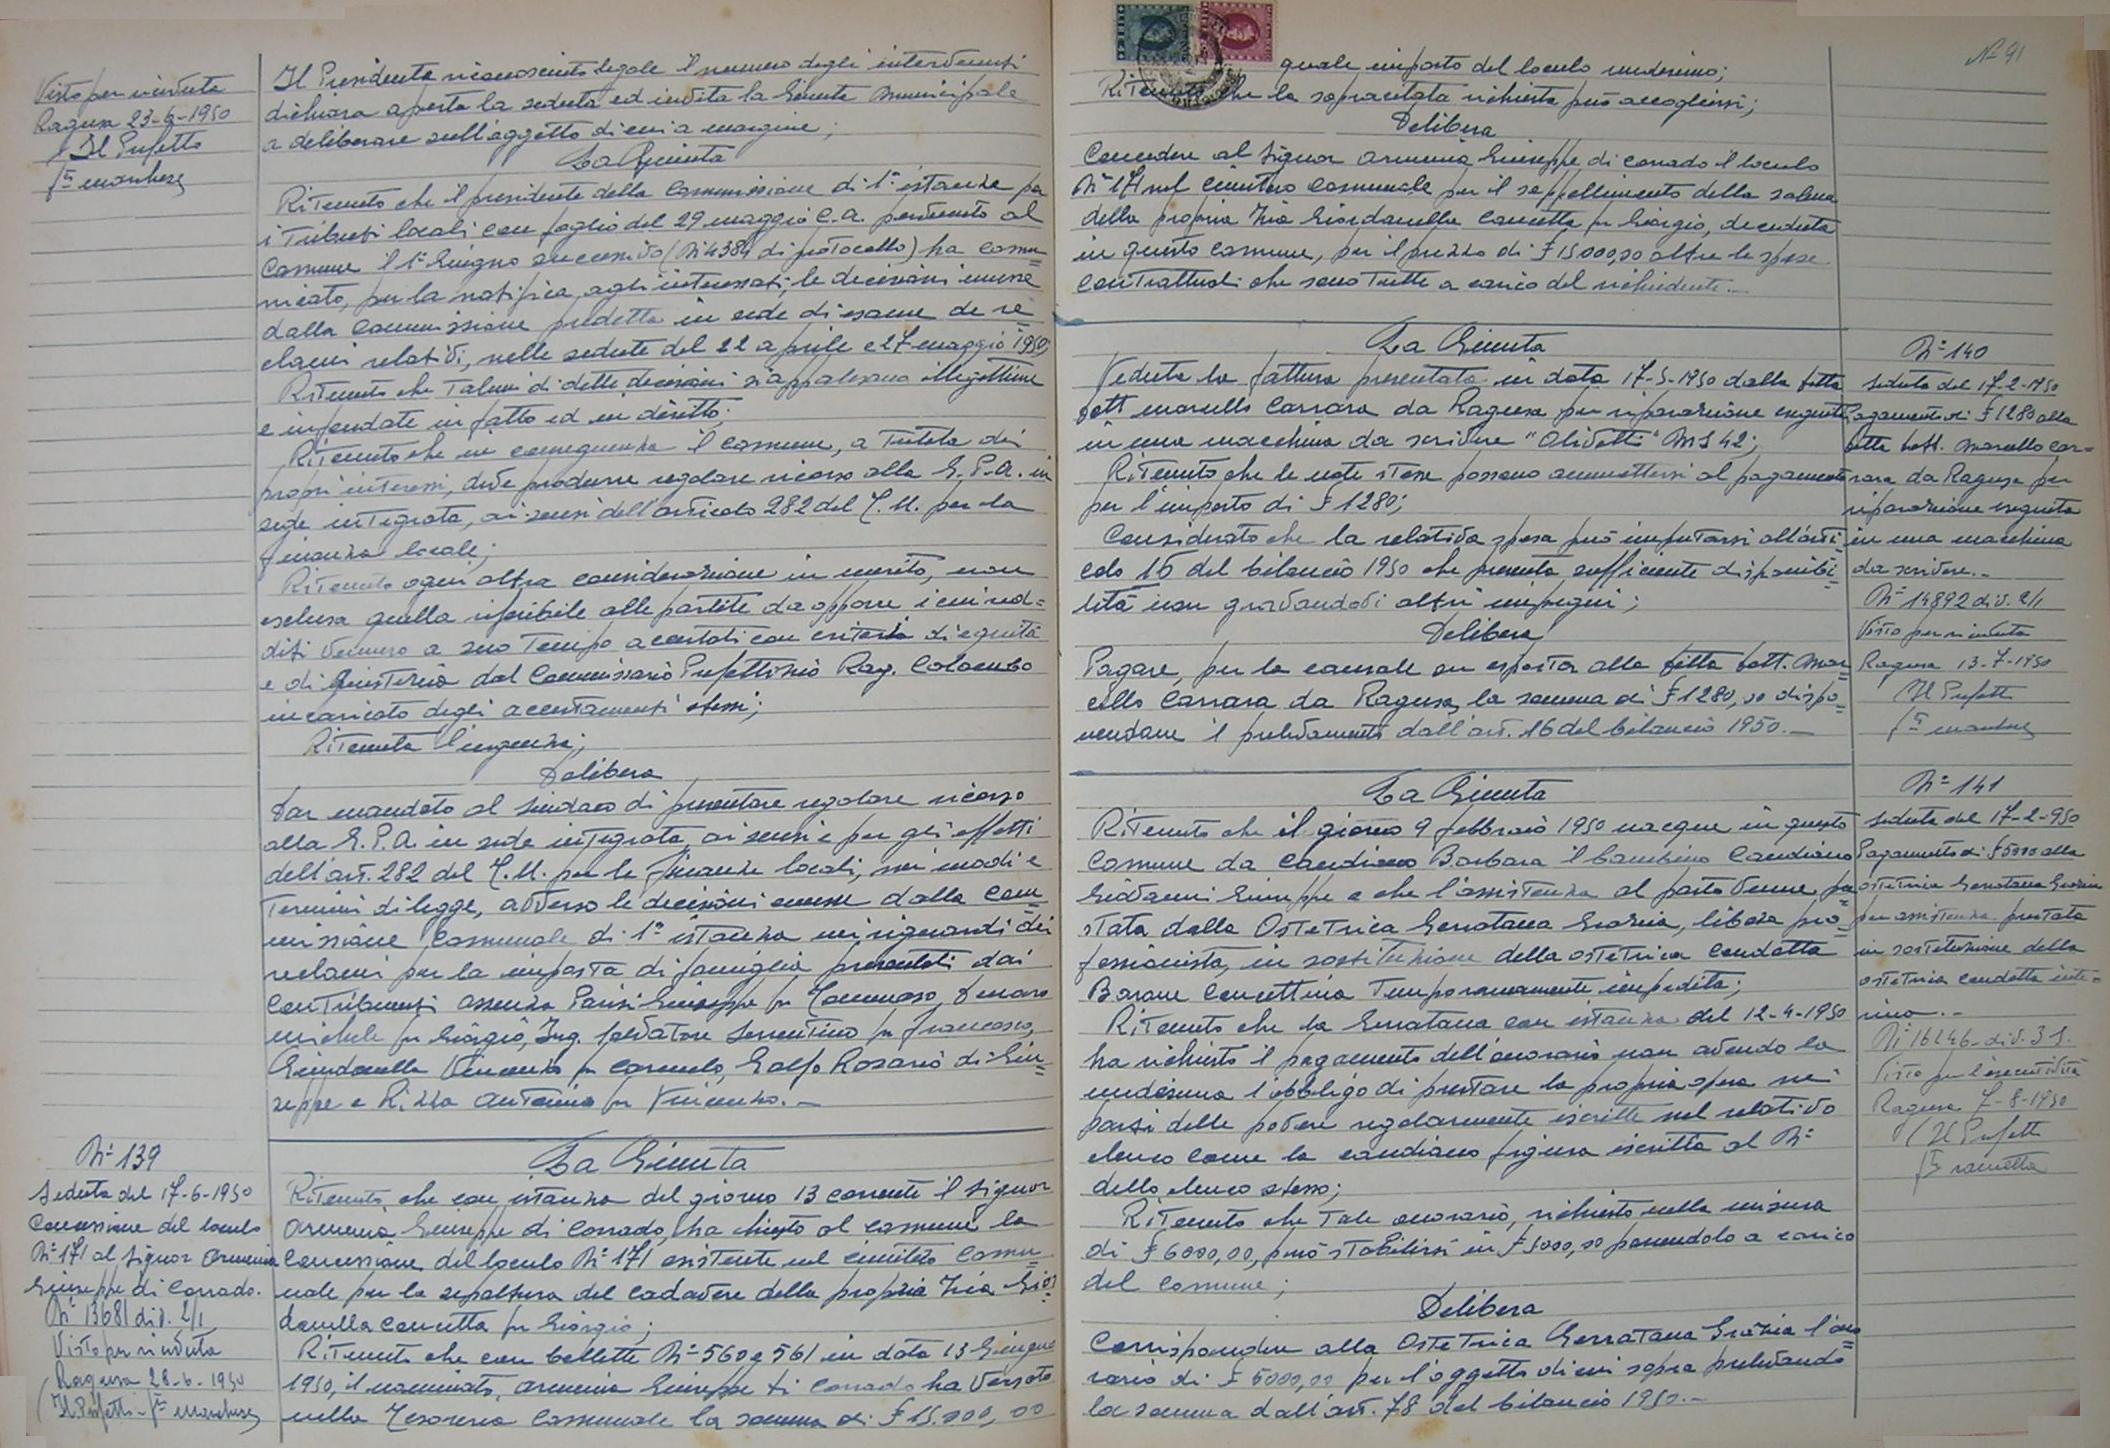 Visto per ricevuta
Ragusa 23-6-1950
Il Prefetto
Il Presidente riconosciuto legale il numero degli intervenuti
dichiara aperta la seduta ed invita la Giunta Municipale
a deliberare sull'oggetto di cui a margine;
La Giunta
Ritenuto che il presidente della Commissione di 1ª istanza per
i Tributi locali con foglio del 29 maggio c.a. pervenuto al
Comune il 1° Giugno successivo (N° 4384 di protocollo) ha comu=
nicato, per la notifica agli interessati, le decisioni emesse
dalla Commissione predetta in sede di esame de re=
clami relativi, nelle sedute del 22 aprile e 27 maggio 1950;
Ritenuto che talune di dette decisioni si appalesano illegittime
e infondate in fatto ed in diritto;
Ritenuto che in conseguenza il comune, a tutela dei
propri interessi, deve produrre regolare ricorso alla G.P.A. in
sede integrata, ai sensi dell'articolo 282 del T.U. per la
finanza locale;
Ritenuto ogni altra considerazione in merito, non
esclusa quella riferibile alle partite da opporre i cui red=
diti vennero a suo tempo accertati con criteri di equità
e di giustizia dal Commissario Prefettizio Rag. Colombo
incaricato degli accertamenti stessi;
Ritenuta l'urgenza;
Delibera
Dar mandato al Sindaco di presentare regolare ricorso
alla G.P.A. in sede integrata, ai sensi e per gli effetti
dell'art. 282 del T.U. per la finanza locali, nei modi e
termini di legge, avverso le decisioni emesse dalla Com=
missione Comunale di 1ª istanza nei riguardi dei
reclami per la imposta di famiglia presentati dai
contribuenti Assenza Parisi Giuseppe fu Tommaso, Denaro
Michele fu Giorgio, Ing. Salvatore Sorrentino fu Francesco,
Giordanella Vincenzo fu Carmelo, Galfo Rosario di Giu=
seppe e Rizza Antonino fu Vincenzo.-
N° 139
Seduta del 17-6-1950
Concessione del loculo
N° 171 al Signor Armenia
Giuseppe di Corrado.
N° 13681 div. 2/1
Visto per ricevuta
Ragusa 28-6-1950
Il Prefetto
La Giunta
Ritenuto che con istanza del giorno 13 corrente il Signor
Armenia Giuseppe di Corrado, ha chiesto al comune la
concessione del loculo N° 171 esistente nel cimitero Comu=
nale per la sepoltura del cadavere della propria Zia Gior=
danella Concetta fu Giorgio;
Ritenuto che con bollette N° 560 e 561 in data 13 Giugno
1950, il nominato, Armenia Giuseppe di Corrado ha versato
nella Tesoreria Comunale la somma di £ 15.000,00
N° 91
quale importo del loculo medesimo;
Ritenuto che la sopracitata richiesta può accogliersi;
Delibera
Concedere al Signor Armenia Giuseppe di Corrado il loculo
N° 171 nel cimitero Comunale per il seppellimento della salma
della propria Zia Giordanella Concetta fu Giorgio, deceduta
in questo comune, per il prezzo di £ 15000,00 oltre le spese
contrattuali che sono tutte a carico del richiedente.-
La Giunta
Veduta la fattura presentata in data 17-5-1950 dalla Ditta
Dott Marcello Carrara da Ragusa per riparazione eseguita
in una macchina da scrivere "Olivetti" MS 42;
Ritenuto che le note stesse possono ammettersi al pagamento
per l'importo di £ 1280;
Considerato che la relativa spesa può imputarsi all'arti=
colo 16 del bilancio 1950 che presenta sufficiente disponibi=
lità non gravandovi altri impegni;
Delibera
Pagare, per la causale su esposta alla Ditta Dott. Mar=
cello Carrara da Ragusa, la somma di £ 1280,00 dispo=
nendone il prelevamento dall'art. 16 del bilancio 1950.-
N° 140
Seduta del 17-2-1950
Pagamento di £ 1280 alla
Ditta Dott. Marcello Car=
rara da Ragusa per
riparazione eseguita
in una macchina
da scrivere.-
N° 14892 div. 2/1
Visto per ricevuta
Ragusa 13-7-1950
Il Prefetto
La Giunta
Ritenuto che il giorno 9 febbraio 1950 nacque in questo
Comune da Candiano Barbara il bambino Candiano
Giovanni Giuseppe e che l'assistenza al parto venne pre=
stata dalla Ostetrica Gerratana Grazia, libera pro=
fessionista, in sostituzione della ostetrica condotta
Barone Concettina temporaneamente impedita;
Ritenuto che la Gerratana con istanza del 12-4-1950
ha richiesto il pagamento dell'onorario non avendo la
medesima l'obbligo di prestare la propria opera nei
parti delle povere regolarmente iscritte nel relativo
elenco come la Candiano figura iscritta al N°
dello elenco stesso;
Ritenuto che tale onorario, richiesto nella misura
di £ 6000,00, può stabilirsi in £ 5000,00 ponendolo a carico
del comune;
Delibera
Corrispondere alla Ostetrica Gerratana Grazia l'ono=
rario di £ 5000,00 per l'oggetto di cui sopra prelevando
la somma dall'art. 78 del bilancio 1950.-
N° 141
Seduta del 17-2-950
Pagamento di £ 5000 alla
ostetrica Gerratana Grazia
per assistenza prestata
in sostituzione della
ostetrica condotta inte=
rina.-
N° 16246 div. 3 S.
Visto per l'esecutività
Ragusa 7-8-1950
Il Prefetto